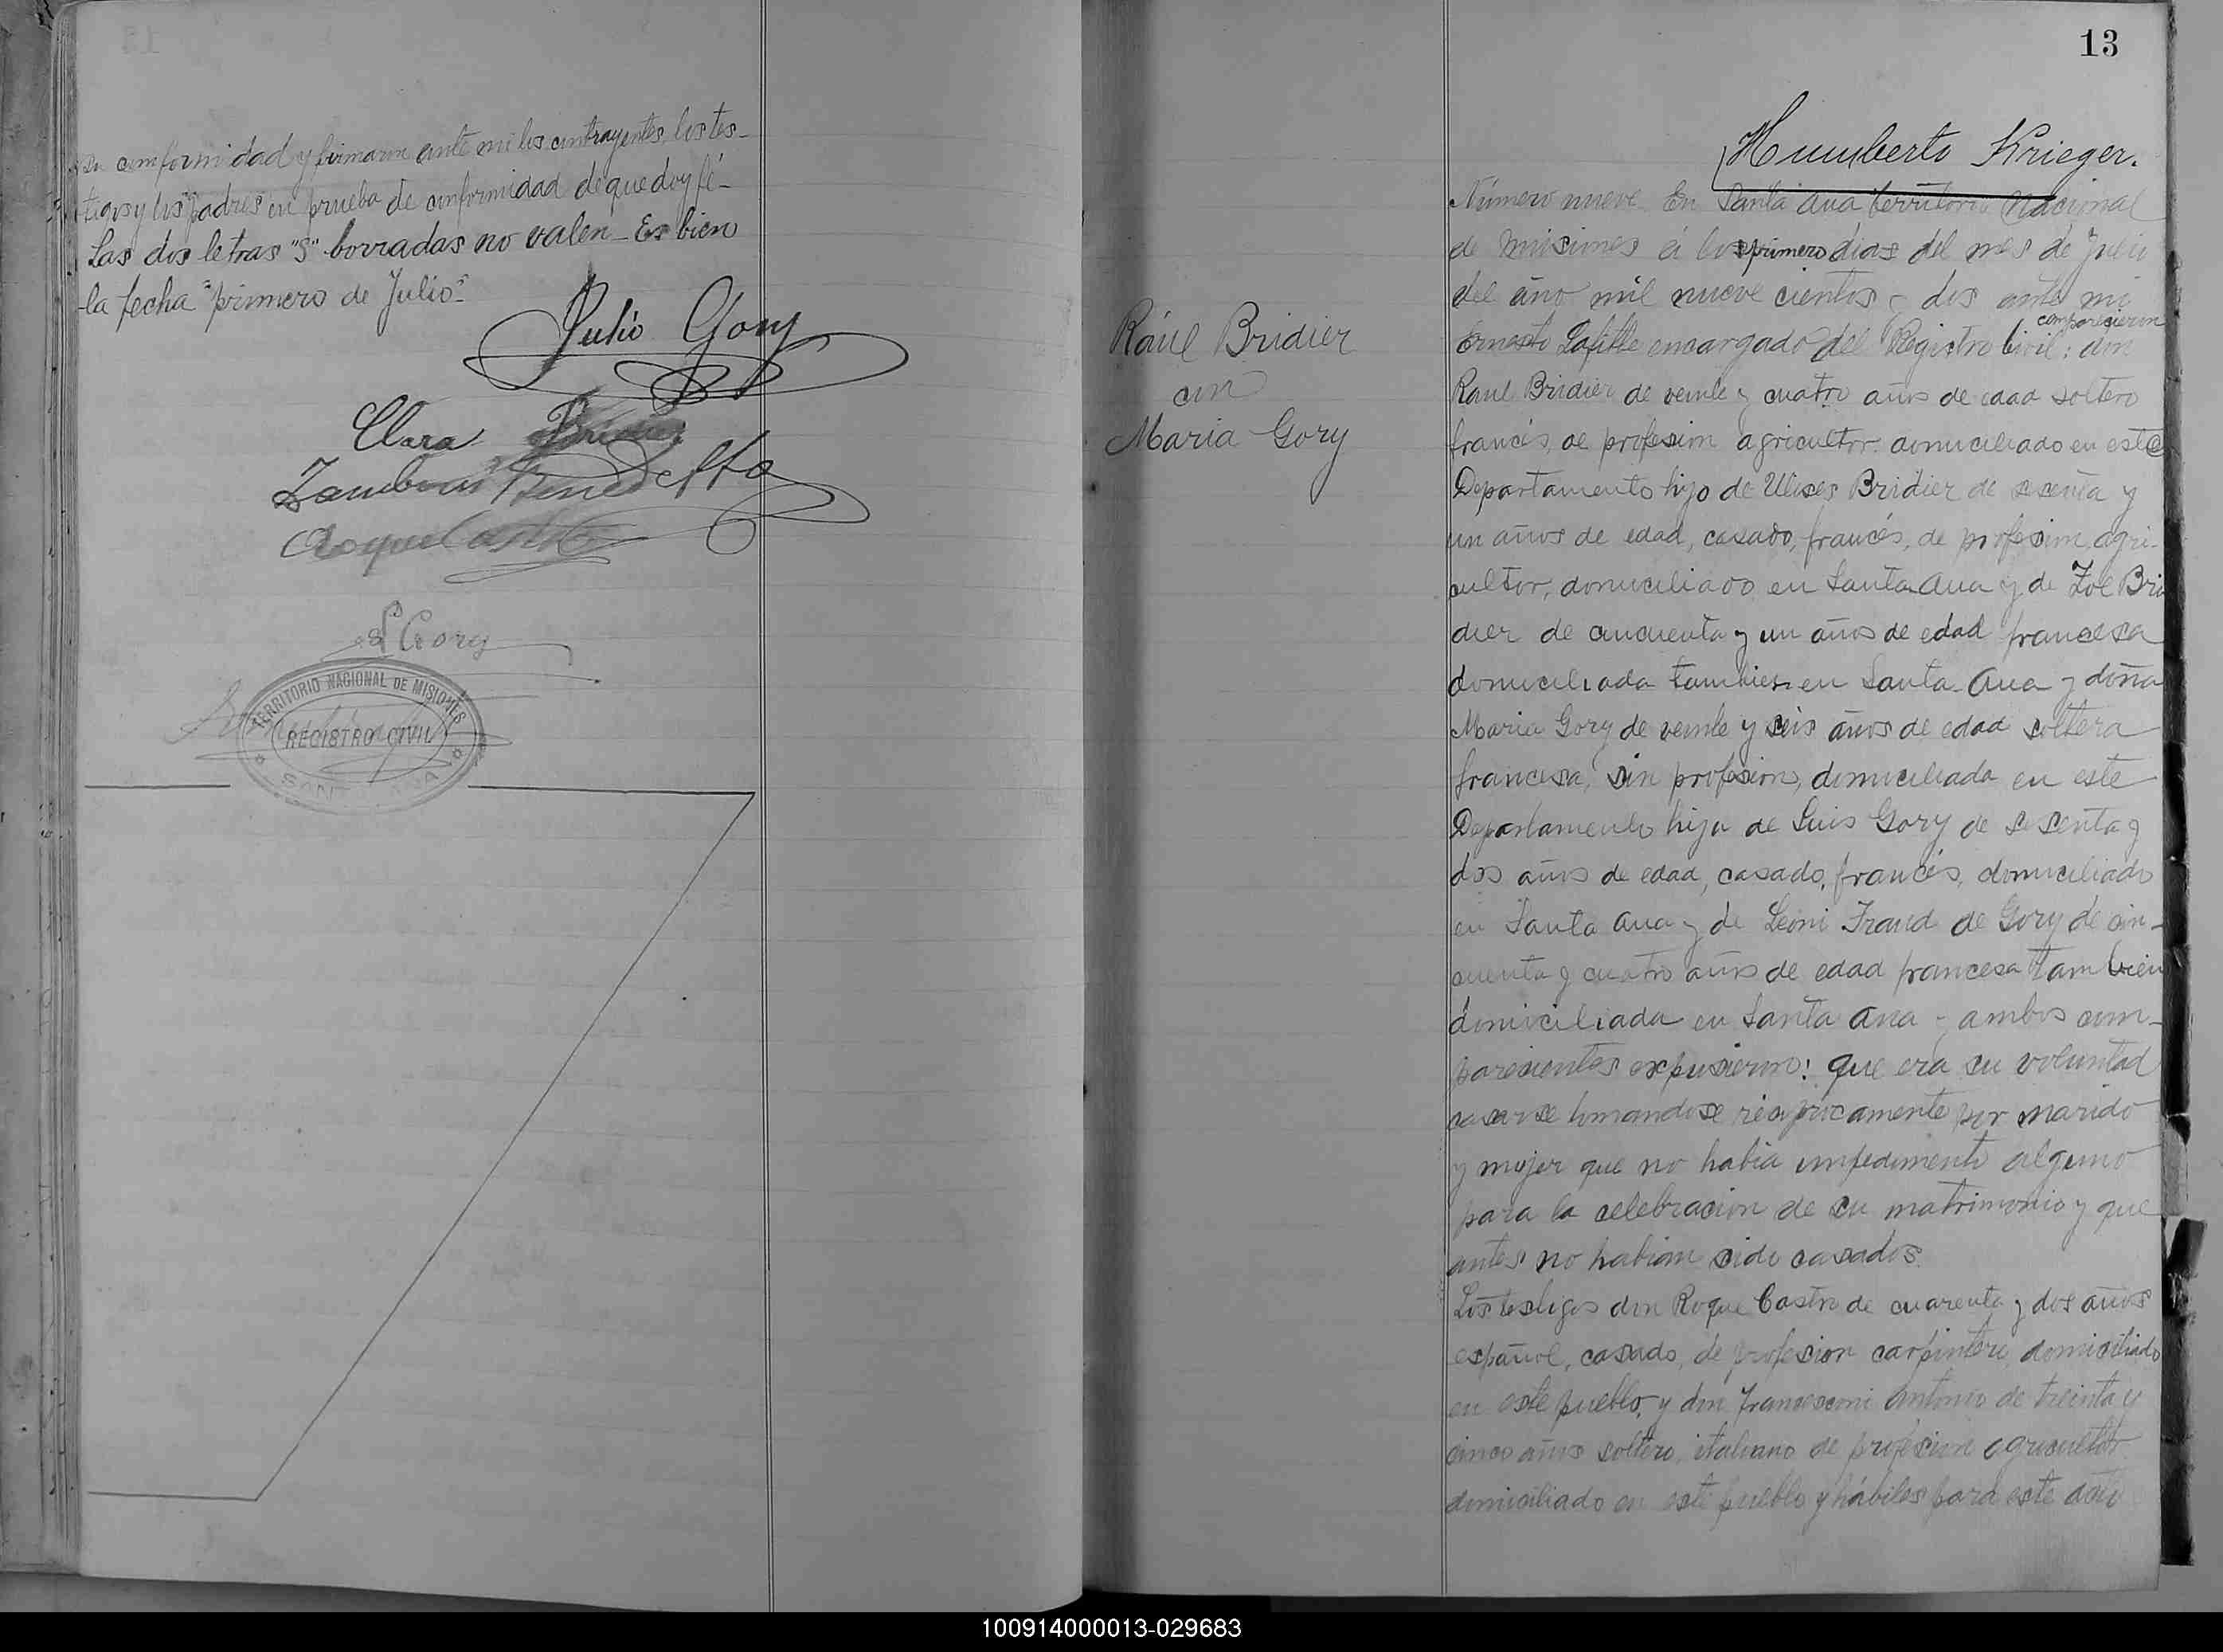 su conformidad y firmaron ante mi los contrayentes, los tes-
tigos y los padres en prueba de conformidad de que doy fé-
Las dos letras "S" borradas no valen - Es bien
la fecha "primero de Julio"-
Julio Gory
Clara Bridier
Zamboni Benedetto
Roque Castro
L Gory
TERRITORIO NACIONAL DE MISIONES
REGISTRO CIVIL
SANTA ANA
13
Humberto Krieger.
Raúl Bridier
con
Maria Gory
Número nueve En Santa Ana territorio Nacional
de Misiones á los primero dias del mes de Julio
del año mil nueve cientos y dos ante mi
comparecieron
Ernesto Lafitte encargado del Registro Civil: don
Raul Bridier de veinte y cuatro años de edad soltero
francés, de profesion agricultor domiciliado en este
Departamento hijo de Ulises Bridier de sesenta y
un años de edad, casado, francés, de profesion, agri-
cultor, domiciliado en Santa Ana y de Zoé Bri
dier de cincuenta y un años de edad francesa
domiciliada tambien en Santa Ana y doña
Maria Gory de veinte y seis años de edad soltera
francesa, sin profesion, domiciliada en este
Departamento hija de Luis Gory de sesenta y
dos años de edad, casado, francés, domiciliado
en Santa Ana y de Leoni Fraud de Gory de cin-
cuenta y cuatro años de edad francesa tambien
domiciliada en Santa Ana y ambos com-
parecientes expusieron: que era su voluntad
casarse tomandose reciprocamente por marido
y mujer que no habia impedimento alguno
para la celebracion de su matrimonio y que
antes no habian sido casados.
Los testigos don Roque Castro de cuarenta y dos años
español, casado, de profesion carpintero domiciliado
en este pueblo, y don Francesconi Antonio de treinta y
cinco años soltero, italiano de profesion agricultor
domiciliado en este pueblo y hábiles para este acto
100914000013-029683